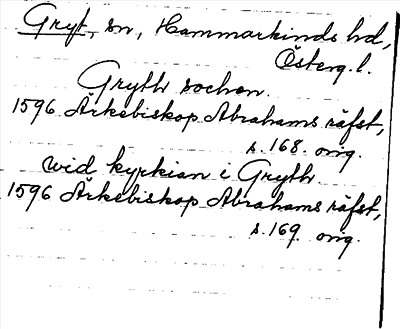 Gryt, sn, Hammarkinds hd,
Österg.l.
Gryth sochen.
1596 Ärkebiskop Abrahams räfst,
s. 168. orig.
wid kyrkian i Gryth
1596 Ärkebiskop Abrahams räfst,
s. 169. orig.